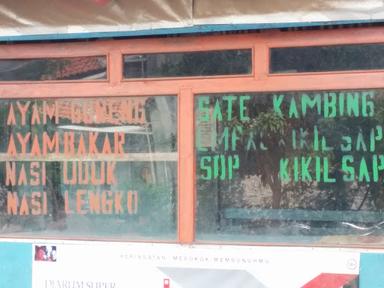 AYAM GORENG
AYAM BAKAR
NASI UDUK
NASI LENGKO
SATE KAMBING
EMPAL KIKIL SAP
SOP KIKIL SAP
PERINGATAN: MEROKOK MEMBUNUHMU
DJARUM SUPER